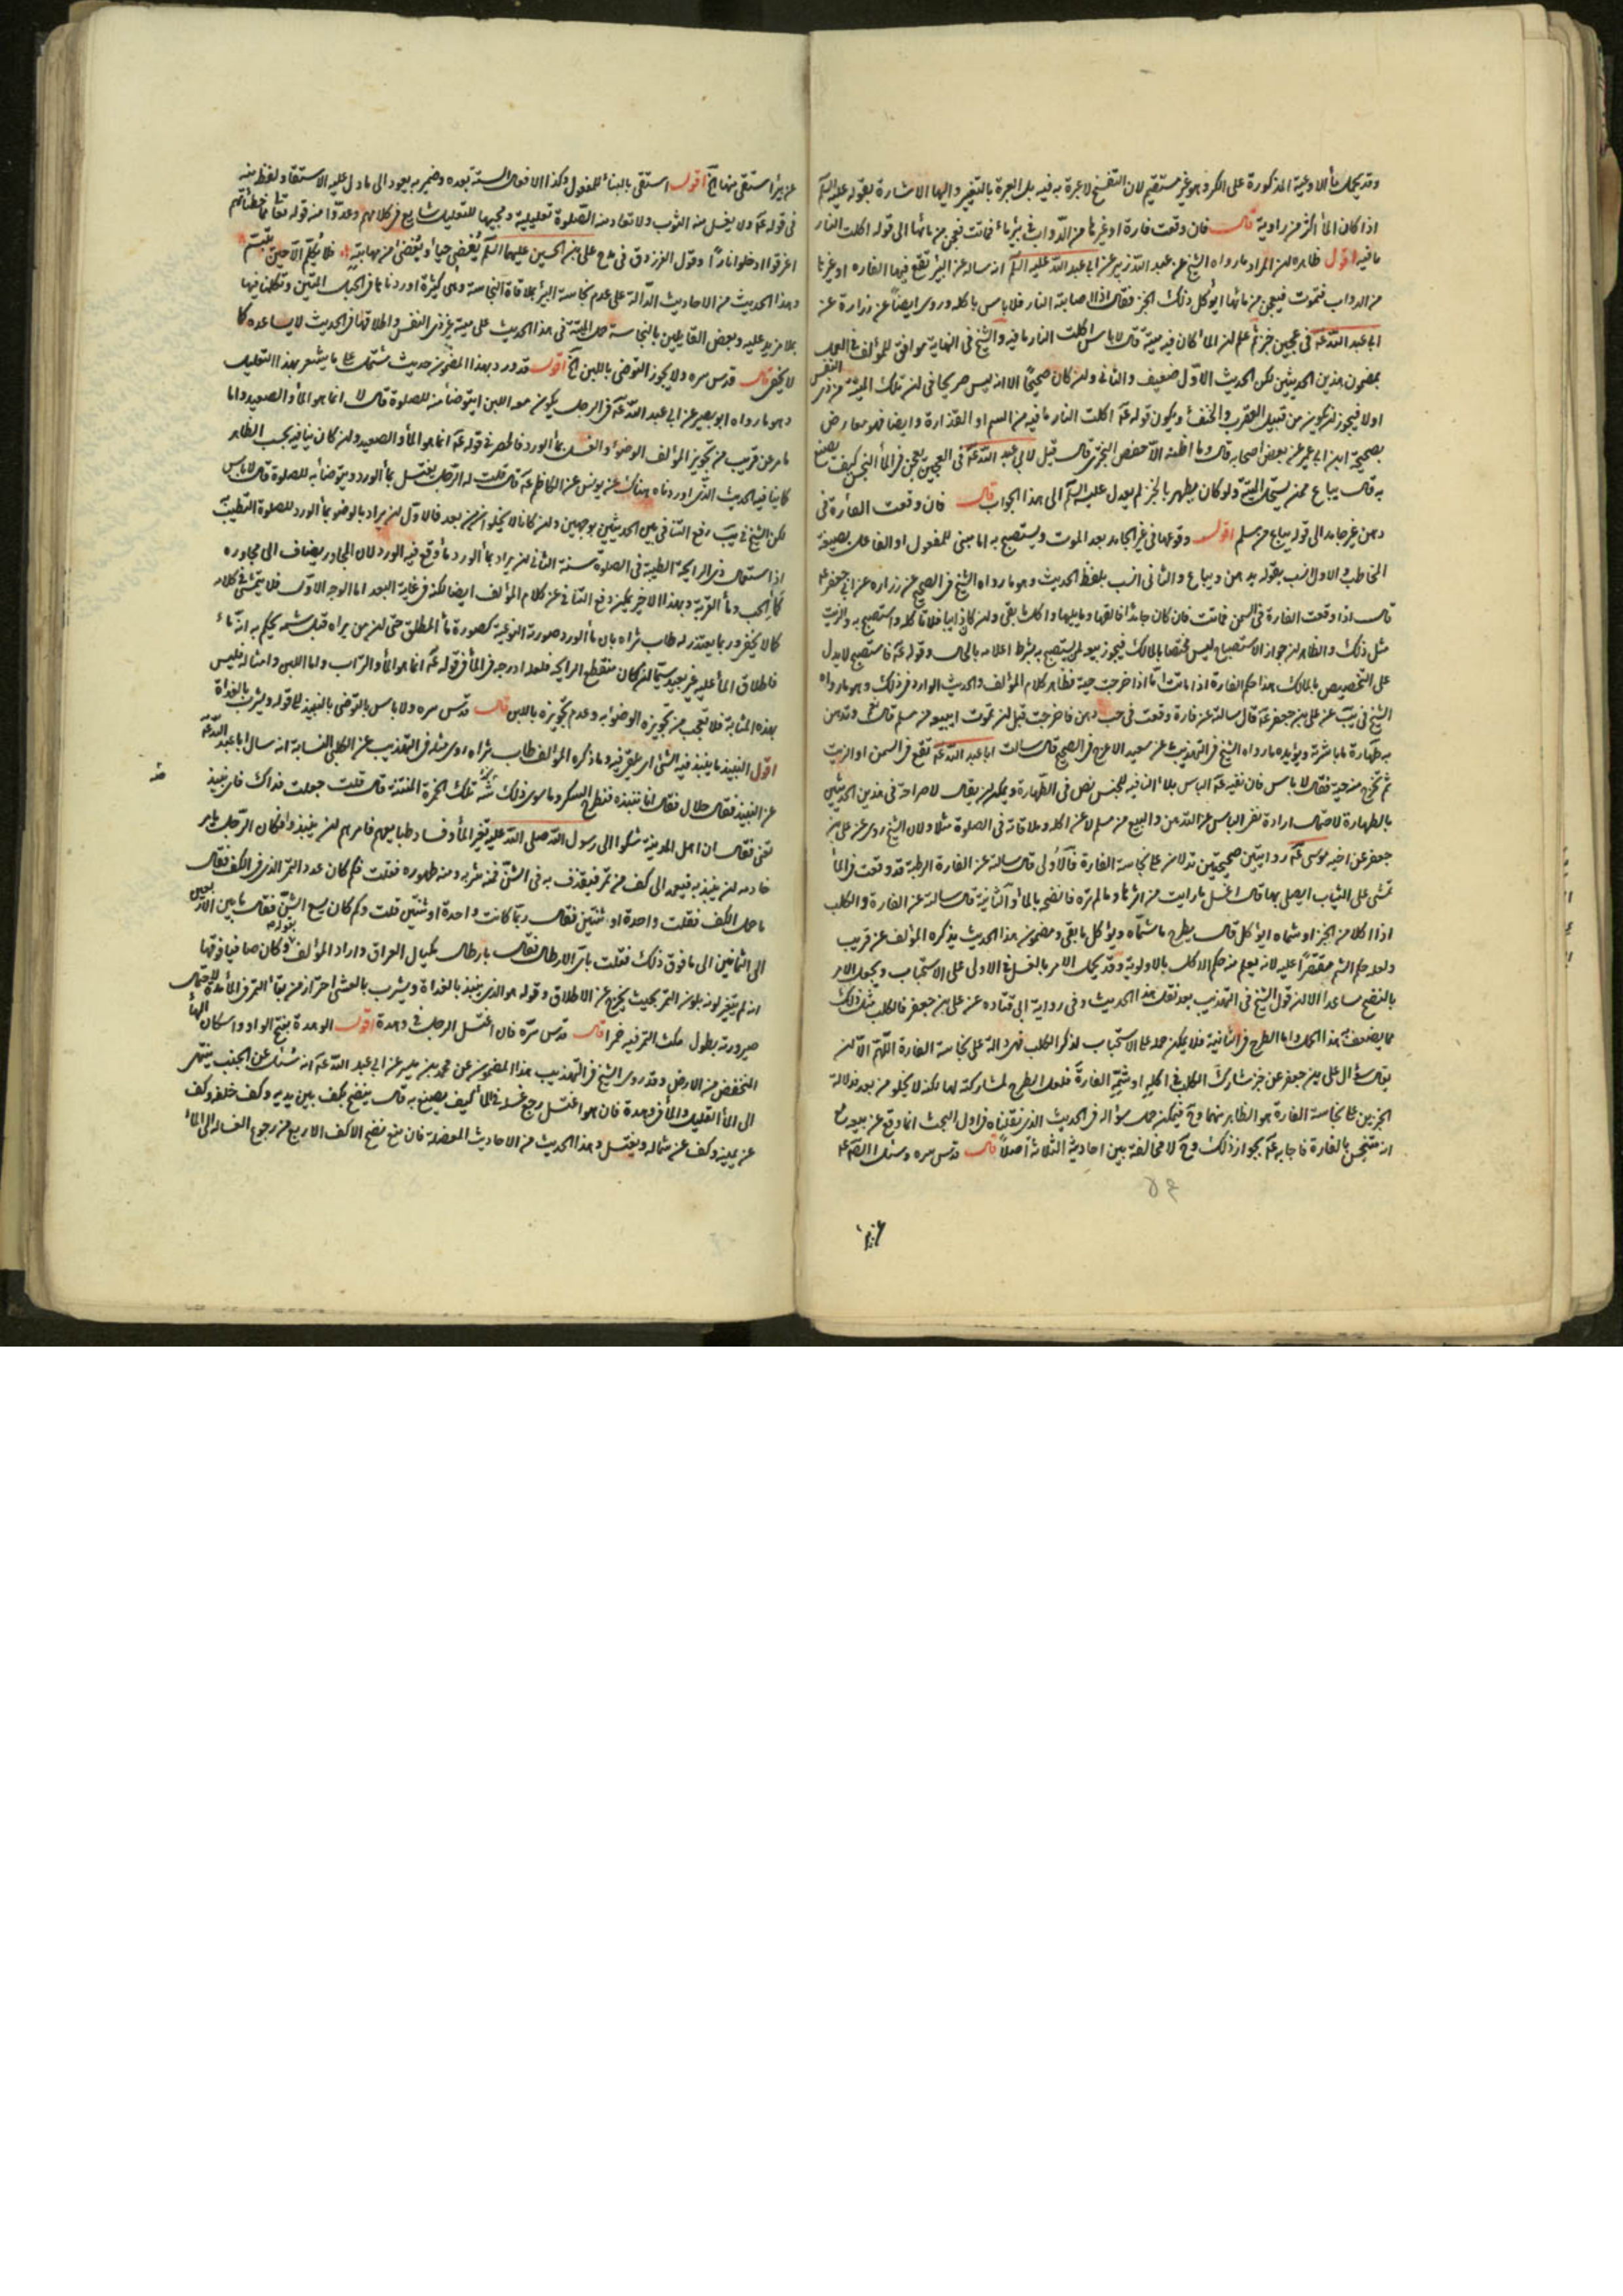 وقد يحمل ماء الاوعية المذكورة على الكر وهو غير مستقيم لان التفسخ لا عبرة به فيه بل العبرة بالتغير واليها الاشارة بقوله عليه السلم
اذا كان الماء اكثر من راوية قال فان وقعت فارة او غيرها من الدواب في بئر ماء فماتت فعجن من مائها الى قوله اكلت النار
ما فيه اقول ظاهره ان المراد ما رواه الشيخ عن عبد الله زبير عن ابي عبد الله عليه السلم انه ساله عن البئر تقع فيها الفاره او غيرها
من الدواب فتموت فيعجن من مائها ايؤكل ذلك الخبز فقال اذا اصابته النار فلا باس باكله وروى ايضا عن زرارة عن
ابي عبد الله عه في عجين خبز ثم علم ان الماء كان فيه ميتة قال لا باس اكلت النار ما فيه والشيخ في النهاية موافق للمؤلف في العمل
بمضمون هذين الحديثين لكن الحديث الاول ضعيف والثاني وان كان صحيحا الا انه ليس صريحا في ان تلك الميتة من ذي النفس
اولا فيجوز ان يكون من قبيل العقرب والخنفساء ويكون قوله عه اكلت النار ما فيه من السم او القذارة وايضا فهو معارض
بصحيحة ابن ابي عمير عن بعض اصحابه قال وما اظنه الا حفص البختري قال قيل لابي عبد الله عه في العجين يعجن من الماء النجس كيف يصنع
به قال يباع ممن يستحل الميتة ولو كان يطهر بالخبز لم يعدل عليه السلم الى هذا الجواب قال فان وقعت الفأرة في
دهن غير جامد الى قوله يباع من مسلم اقول وقوعها في غير الجامد بعد الموت ويستصبح به اما مبني للمفعول او الفاعل بصيغة
المخاطب والاول انسب بقوله يدهن ويباع والثاني انسب بلفظ الحديث وهو ما رواه الشيخ في الصحيح عن زراره عن ابي جعفر عه
قال اذا وقعت الفارة في السمن فماتت فان كان جامدا فالقها وما يليها وكل ما بقي وان كان ذائبا فلا تاكله واستصبح به والزيت
مثل ذلك والظاهر ان جواز الاستصباح ليس مختصا بالمالك فيجوز بيعه لمن يستصبح به بشرط اعلامه بالحال وقوله عه فاستصبح لا يدل
على التخصيص بالمالك هذا حكم الفارة اذا ماتت اما اذا خرجت حية فظاهر كلام المؤلف والحديث الوارد في ذلك وهو ما رواه
الشيخ في يب عن علي بن جعفر عه قال سالته عن فارة وقعت في حب دهن فاخرجت قبل ان تموت ابيعه من مسلم قال نعم وتدهن
به طهارة ما باشرته ويؤيده ما رواه الشيخ في التهذيب عن سعيد الاعرج في الصحيح قال سالت ابا عبد الله عه تقع في السمن او الزيت
ثم تخرج منه حية فقال لا باس فان نفيه عه الباس بلاء النافيه للجنس نص في الطهارة ويمكن ان يقال لا صراحة في هذين الحديثين
بالطهارة لاحتمال ارادة نفي الباس عن الدهن والبيع من مسلم لا عن اكله وملاقاته في الصلوة مثلا ولان الشيخ روى عن علي بن
جعفر عن اخيه موسى عه روايتين صحيحتين تدلان على نجاسة الفارة فالاولى قال سالته عن الفارة الرطبة قد وقعت في الماء
تمشي على الثياب ايصلي بها قال اغسل ما رايت من اثرها وما لم تره فانضحه بالماء والثانية قال سالته عن الفارة والكلب
اذا اكلا من الخبز او شماه ايؤكل قال يطرح ما شماه ويؤكل ما بقي ومضمون هذا الحديث يذكره المؤلف عن قريب
ولعله حكم الشم مقتصرا عليه لانه يعلم منه حكم الاكل بالاولوية وقد يحمل الامر بالغسل في الاولى على الاستحباب ويجعل الامر
بالنضح مساعدا الا ان قول الشيخ في التهذيب بعد نقل هذا الحديث وفي رواية ابي قتاده عن علي بن جعفر فالكلب مثل ذلك
مما يضعف هذا الحمل واما الطرح في الثانية فلا يمكن حمله على الاستحباب لذكر الكلب فهي دالة على نجاسة الفارة اللهم الا ان
يقال سؤال علي بن جعفر عن خبز شارك الكلب في اكله او شمه الفارة فلعل الطرح لمشاركته لها لكنه لا يخلو من بعد فدلالة
الخبرين على نجاسة الفارة هو الظاهر منهما وح فيمكن حمل سؤاله في الحديث الذي نقلناه في اول البحث انما وقع عن بيعه مع
انه متنجس بالفارة فاجابه عه بجواز ذلك وح لا مخالفة بين احاديثه الثلاثة اصلا قال قدس سره وسئل الصادق عه
عن بئر استقي منها الخ اقول استقي بالبناء للمفعول وكذا الافعال الستة بعده وضمير به يعود الى ما دل عليه الاستقاء ولفظ منه
في قوله عه ولا يغسل منه الثوب ولا تعاد منه الصلوة تعليلية ومجيئها للتعليل شايع في كلامهم وعدوا منه قوله تعالى مما خطيئاتهم
اغرقوا ادخلوا نارا وقول الفرزدق في مدح علي بن الحسين عليهما السلم يغضي حياء ويغضى من مهابته فلا يكلم الا حين يبتسم
وهذا الحديث من الاحاديث الدالة على عدم نجاسة البئر بملاقاة النجاسة وهي كثيرة اوردناها في الحبل المتين وتكلمنا فيها
بما لا مزيد عليه وبعض القايلين بالنجاسة حمل الميتة في هذا الحديث على ميتة غير ذي النفس واطلاقها في الحديث لا يساعده كما
لا يخفى قال قدس سره ولا يجوز التوضي باللبن الخ اقول قد ورد بهذا المضمون حديث مشتمل على ما يشعر بهذا التعليل
وهو ما رواه ابو بصير عن ابي عبد الله عه في الرجل يكون معه اللبن ايتوضأ منه للصلوة قال لا انما هو الماء والصعيد واما
ما مر عن قريب من تجويز المؤلف الوضوء والغسل بماء الورد فالحصر في قوله عه انما هو الماء والصعيد وان كان ينافيه بحسب الظاهر
كما ينافيه الحديث الذي اوردناه هناك عن يونس عن الكاظم عه قال قلت له الرجل يغتسل بماء الورد ويتوضأ به للصلوة قال لا باس
لكن الشيخ في يب رفع التنافي بين الحديثين بوجهين وان كانا لا يخلوان من بعد فالاول ان يراد بالوضوء بماء الورد للصلوة التطيب
اذا استعمال ذي الرايحة الطيبة في الصلوة سنة الثاني ان يراد بماء الورد ماء وقع فيه الورد لان المجاور يضاف الى مجاوره
كماء الحب وماء القربة وبهذا الاخير يمكن رفع التنافي عن كلام المؤلف ايضا لكنه في غاية البعد اما الوجه الاول فلا يتمشى في كلامه
كما لا يخفى وربما يعتذر له طاب ثراه بان ماء الورد صورته النوعية كصورة ماء المطلق حتى ان من يراه قبل شمه يحكم بانه ماء
فاطلاق الماء عليه غير بعيد سيما ان كان منقطع الرايحة فلعله ادرجه في الماء في قوله عه انما هو الماء والتراب واما اللبن وامثاله فليس
بهذه المثابة فلا تعجب من تجويزه الوضوء به وعدم تجويزه باللبن قال قدس سره ولا باس بالتوضي بالنبيذ الى قوله ويشرب بالغداة
اقول النبيذ ما ينبذ فيه الشيء اي يلقى فيه وما ذكره المؤلف طاب ثراه روى مثله في التهذيب عن الكلبي النسابة انه سال ابا عبد الله عه
عن النبيذ فقال حلال فقال انا ننبذه فنطرح العكر وما سوى ذلك شه شه تلك الخمرة المنتنة قال قلت جعلت فداك فاي نبيذ
تعني فقال ان اهل المدينة شكوا الى رسول الله صلى الله عليه تغير الماء وفساد طبايعهم فامرهم ان ينبذوا فكان الرجل يامر
خادمه ان ينبذ به فيعمد الى كف من تمر فيقذف به في الشن فمنه شربه ومنه طهوره فقلت فكم كان عدد التمر الذي في الكف فقال
ما حمل الكف فقلت واحدة او ثنتين فقال ربما كانت واحدة او ثنتين قلت وكم كان يسع الشن فقال ما بين الاربعين
الى الثمانين الى ما فوق ذلك فقلت باي الارطال فقال بارطال مكيال العراق واراد المؤلف بقوله وكان صافيا فوقها
انه لم يتغير لونه بلون التمر بحيث يخرج عن الاطلاق وقوله هو الذي ينبذ بالغداة ويشرب بالعشي احتراز من بقاء التمر في الماء مدة لاحتمال
صيرورته بطول مكث التمر فيه خمرا قال قدس سره فان اغتسل الرجل في وهدة اقول الوهدة بفتح الواو واسكان الهاء
المنخفض من الارض وقد روى الشيخ في التهذيب هذا المضمون عن محمد بن ميسر عن ابي عبد الله عه انه سئل عن الجنب ينتهي
الى الماء القليل والماء في وهدة فان هو اغتسل رجع غسله في الماء كيف يصنع به قال ينضح بكف بين يديه وكف خلفه وكف
عن يمينه وكف عن شماله ويغتسل وهذا الحديث من الاحاديث المعضلة فان منع نضح الاكف الاربع من رجوع الغسالة الى الماء